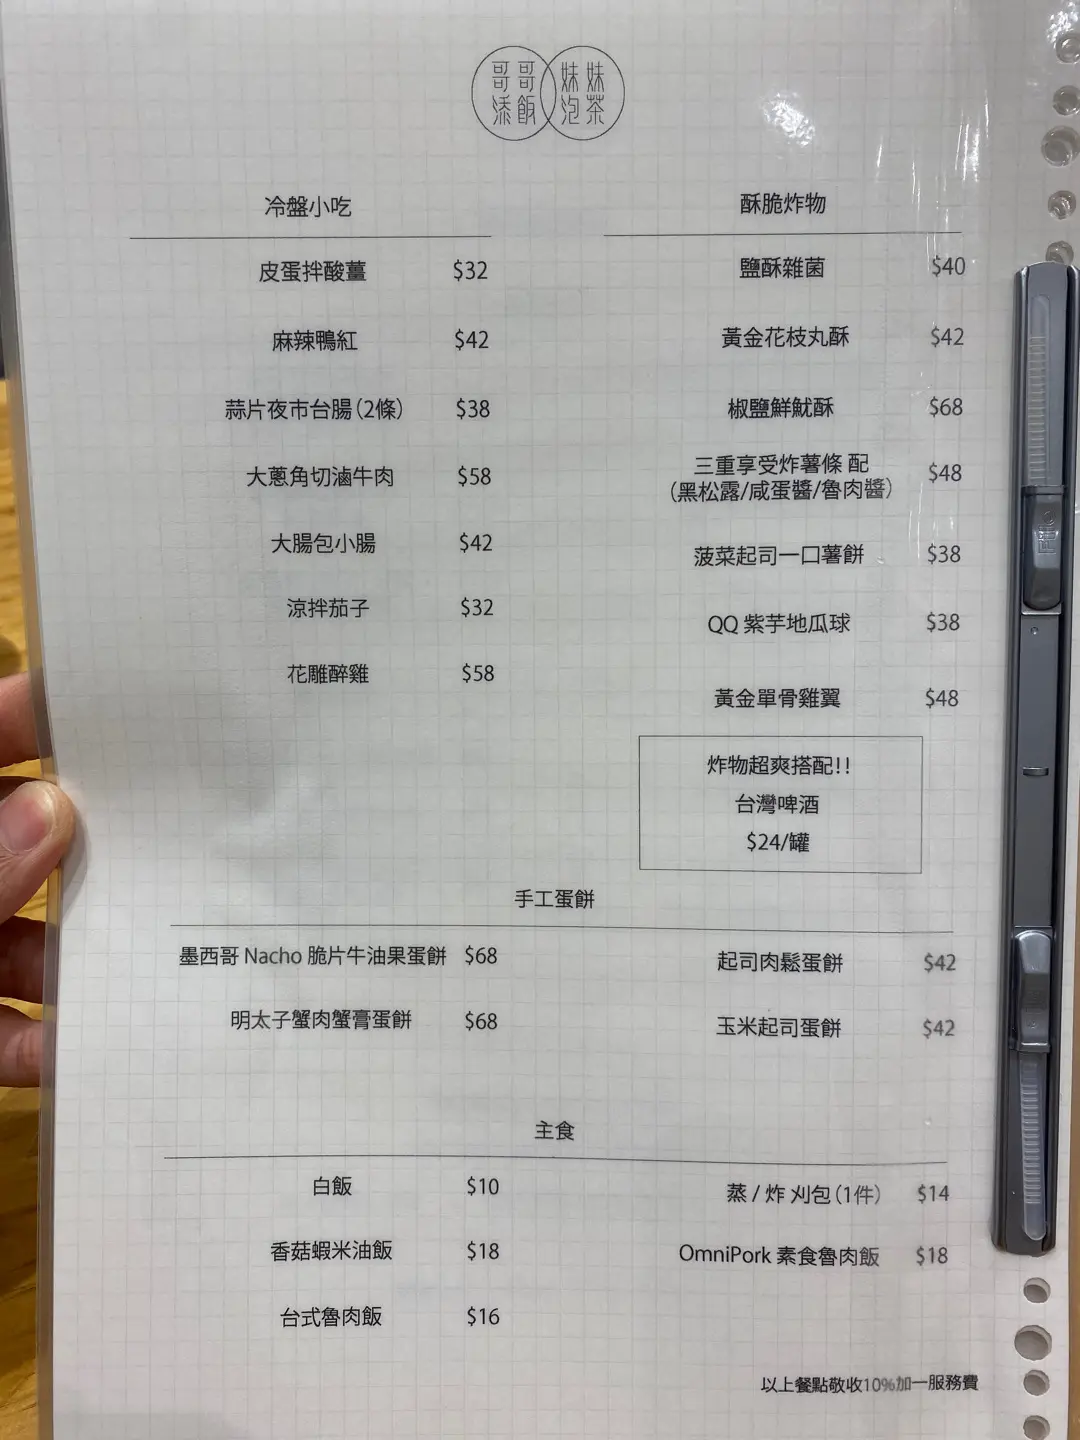 哥哥 妹妹
添飯 泡茶
冷盤小吃
皮蛋拌酸薑 $32
麻辣鴨紅 $42
蒜片夜市台腸(2條) $38
大蔥角切滷牛肉 $58
大腸包小腸 $42
涼拌茄子 $32
花雕醉雞 $58
酥脆炸物
鹽酥雜菌 $40
黃金花枝丸酥 $42
椒鹽鮮魷酥 $68
三重享受炸薯條 配 $48
(黑松露/咸蛋醬/魯肉醬)
菠菜起司一口薯餅 $38
QQ 紫芋地瓜球 $38
黃金單骨雞翼 $48
炸物超爽搭配!!
台灣啤酒
$24/罐
手工蛋餅
墨西哥 Nacho 脆片牛油果蛋餅 $68
明太子蟹肉蟹膏蛋餅 $68
起司肉鬆蛋餅 $42
玉米起司蛋餅 $42
主食
白飯 $10
香菇蝦米油飯 $18
台式魯肉飯 $16
蒸 / 炸 刈包(1件) $14
OmniPork 素食魯肉飯 $18
以上餐點敬收10%加一服務費